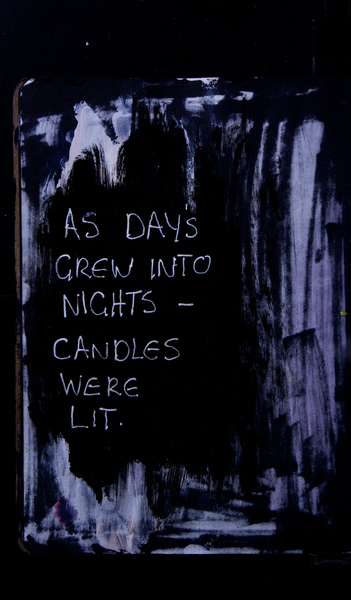 AS DAYS
GREW INTO
NIGHTS –
CANDLES
WERE
LIT.